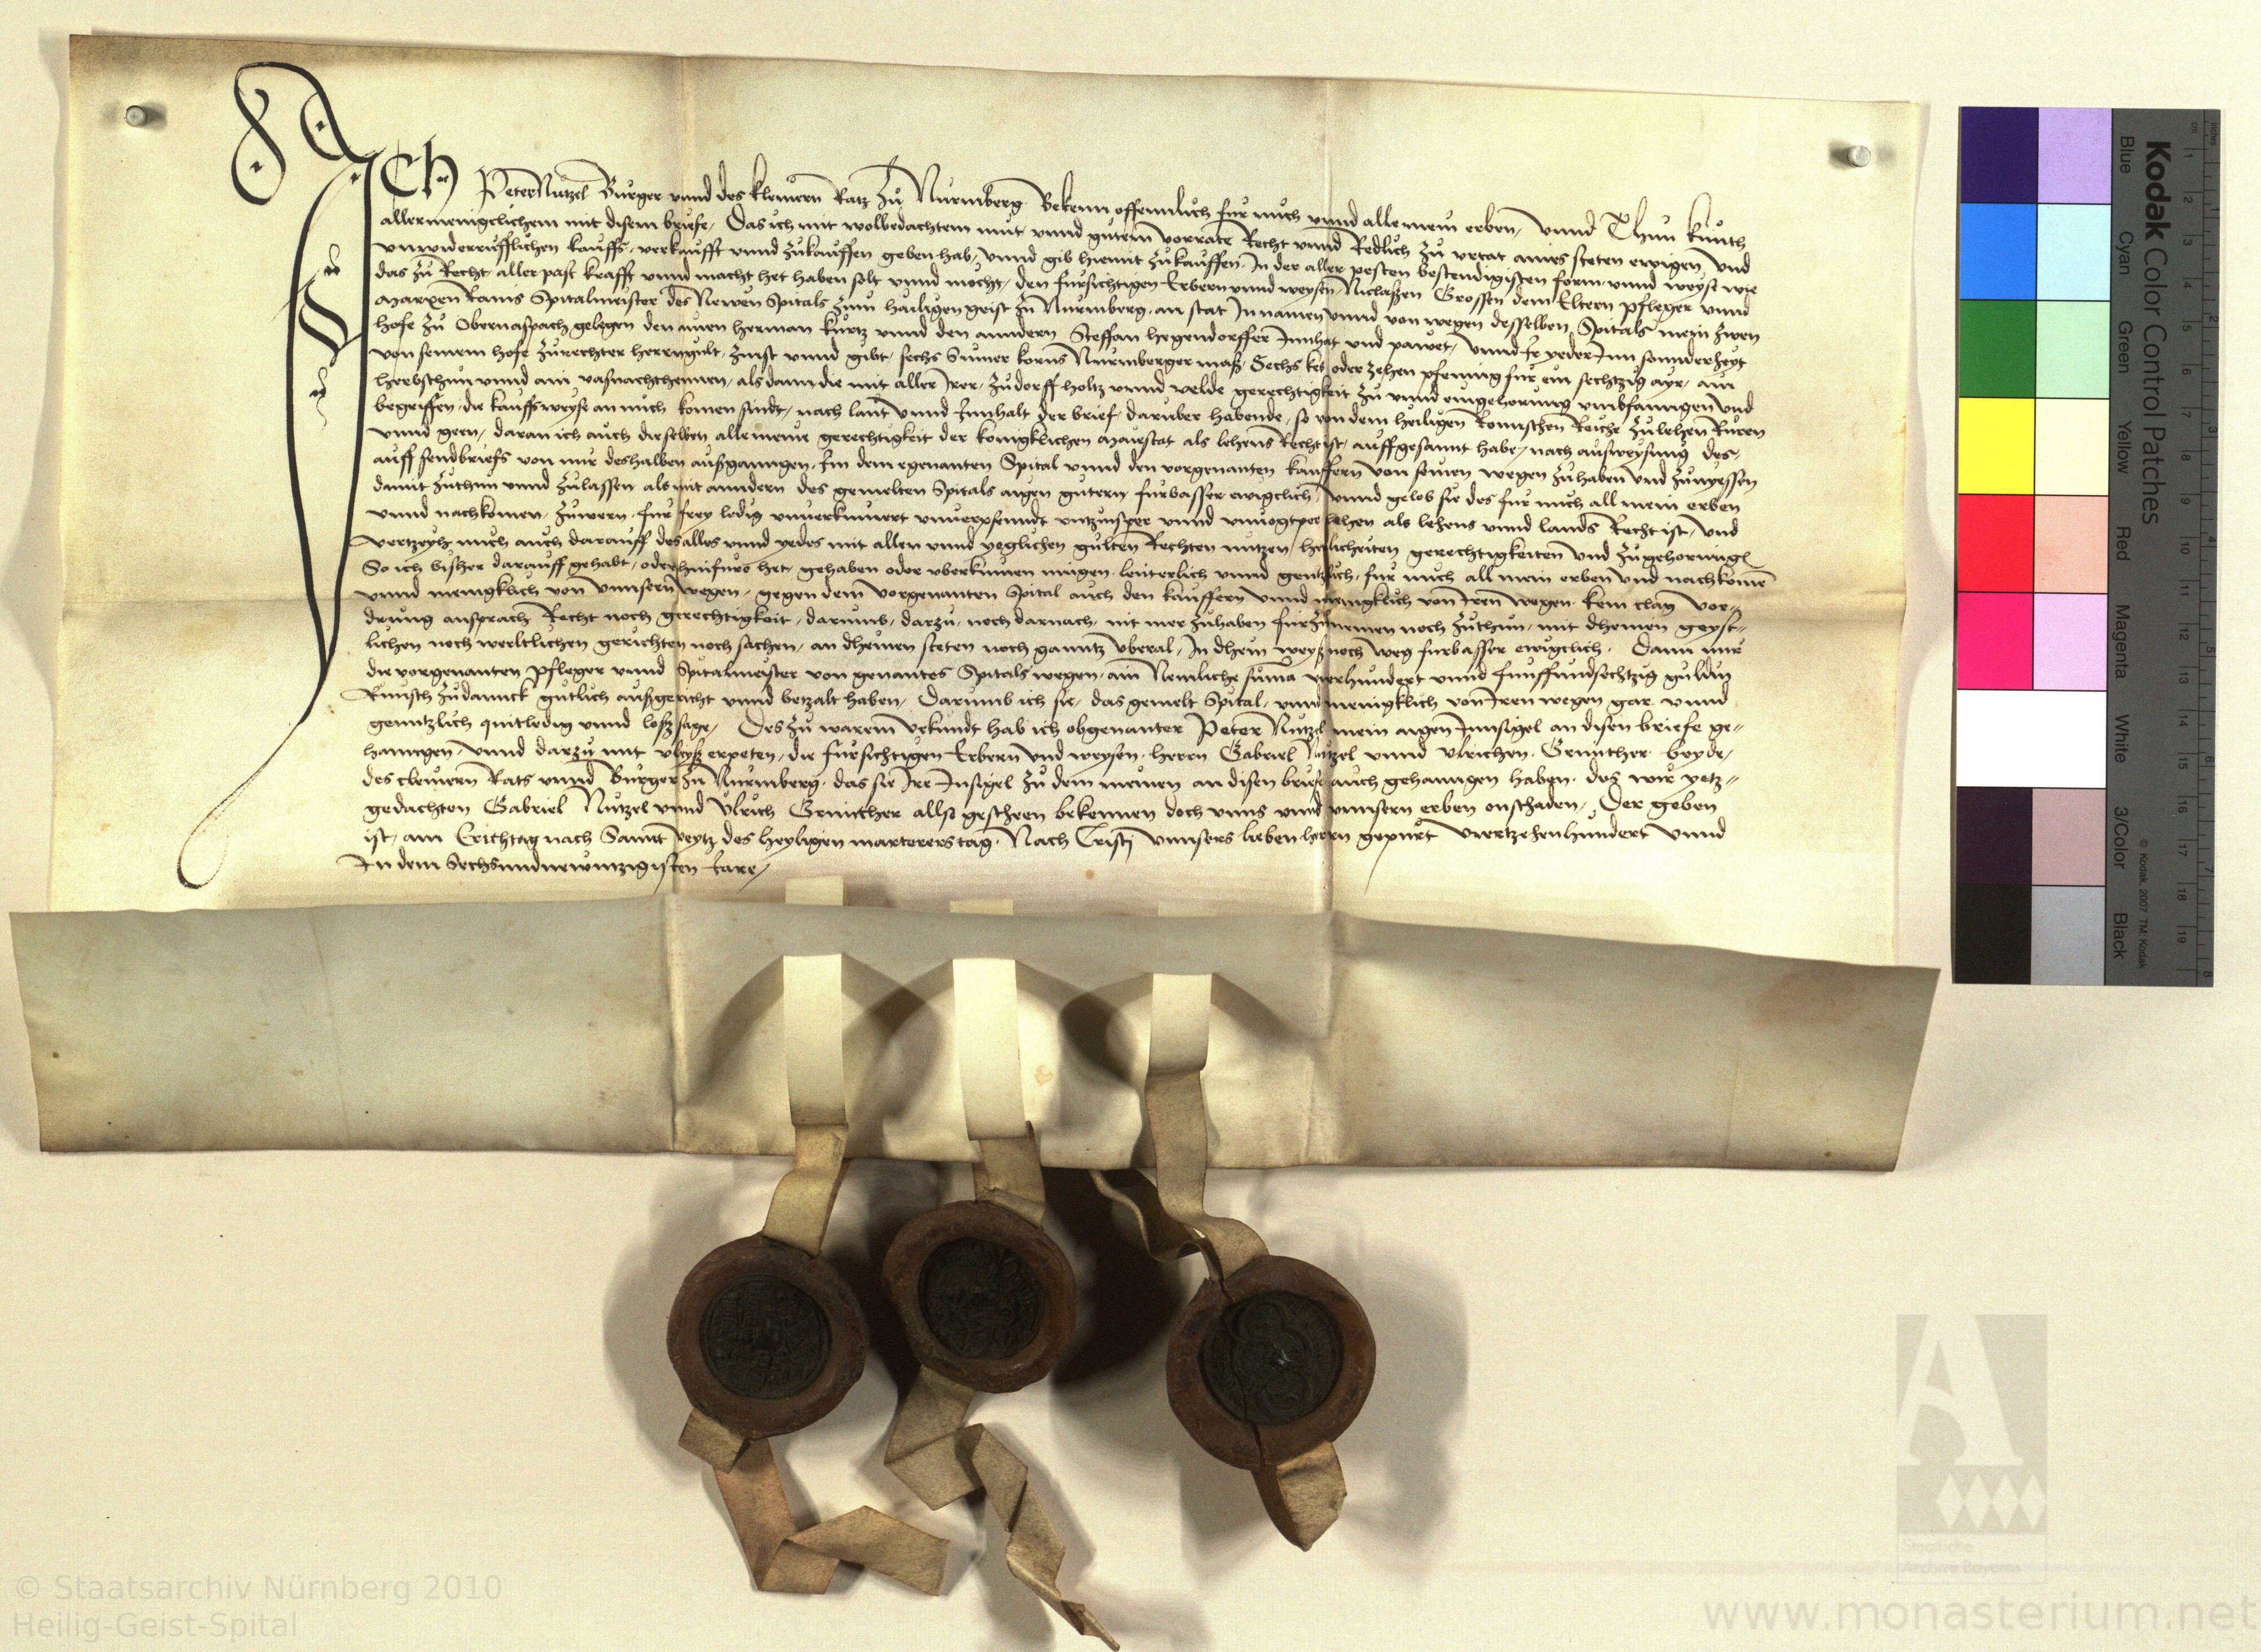 ICH Peter Nutzel Burger vnnd des kleinern Ratz zů Nurmberg Bekenn offennlich fur mich vnnd alle mein erben, vnnd Thun kunth
allermenigclichem mit disem briefe, Das ich mit wolbedachtem mut vnnd gutem vorrate Recht vnnd Redlich zů vrtat aines steten ewigen vnd
vnwiderrufflichen kauffs, verkaufft vnnd zukauffen geben hab, vnnd gib hiemit zukauffen, In der aller pesten bestendigisten form vnnd weyse wie
das zů Recht aller past krafft vnnd macht het haben solt vnnd mocht, den fursichtigen Erbern vnnd weysen, Niclaßen Grossen dem Eltern pfleger vnnd
Marxen Ranis Spitalmeister des Newen Spitals zum hailigen geist zu Nurmberg, an stat In namen vnnd von wegen desselben Spitals mein zwen
hofe zů Obernaspach gelegen den ainen Herman Kurtz vnnd den anndern Steffan Hegendorffer Innhat vnd pawet, vnnd Ir yeder Inn sonnderheyt
von seinem hofe zurechter herrngult, zinst vnnd gibt, sechs Sumer korns Nurmberger maß, Sechs kes oder zehen pfennig fur ein sechtzig ayr, ain
herbsthun vnnd ain vasnachthennen, als dann die mit aller Irer zů dorff holtz vnnd velde gerechtigkeit zů vnnd eingehorung vmbfanngen vnd
begriffen, die kauffsweyse an mich komen sindt, nach laut vnnd Innhalt der brief daruber habende, so von dem heiligen Romischen Reiche zulehen Ruren
vnnd geen, daran ich auch dieselben alle meine gerechtigkeit der konigklichen Maiestat als lehens Recht ist, auffgesannt habe, nach ausweysung des
auff sendbriefs von mir deshalben außganngen, Im dem egenanten Spital vnnd den vorgenanten kauffern von seinen wegen zuhaben vnd zunyessen
damit zuthun vnnd zulassen als mit anndern des gemelten Spitals aigen gutern furbasser ewigclich, vnnd gelob sie des fur mich all mein erben
vnnd nachkomen, zuwern, fur frey ledig vnuerkumert vnuerpfenndt vntzinsper vnnd vnuogtper lehen als lehens vnnd lands Recht ist, vnd
vertzeyh mich auch darauff des alles vnnd yedes mit allen vnnd yeglichen gulten Rechten nutzen herlicheiten gerechtigkeiten vnd zugehorungen
So ich bißher darauff gehabt, oder hinfuro het, gehaben oder vberkumen mugen, leuterlich vnnd gentzlich, fur mich all mein erben vnd nachkomen
vnnd menigklich von vnnsern wegen, gegen dem vorgenanten Spital auch den kauffern vnnd menigklich von Iren wegen, kein clag vor-
drung ansprach Recht noch gerechtigkeit, darumb, darzu, noch darnach, nit mer zuhaben furzunemen noch zuthun, mit dheinen geyst-
lichen noch werltlichen gerichten noch sachen, an dheinen steten noch ganntz vberal, In dhein weyß noch weg furbasser ewigclich. Dann mir
die vorgenanten pfleger vnnd Spitalmeister von genantes Spitals wegen, ain Nemliche suma vierhundert vnnd funffundsechtzig guldin
Rinisch zudannck gutlich außgericht vnnd betzalt haben, Darumb ich sie, das gemelt Spital, vnnd menigklich von Iren wegen gar vnnd
genntzlich quitledig vnnd loßsage, Des zů warem vrkundt hab ich obgenanter Peter Nutzel mein aigen Innsigel an disen briefe ge-
hanngen, vnnd darzu mit vleyß erpeten, die fursichtigen Erbern vnd weysen, herrn Gabriel Nutzel vnnd Vlrichen Grunther beyde,
des cleinern Rats vnnd Burger zu Nurmberg, das sie Ire Insigel zů dem meinen an disen briefe auch gehanngen haben, des wir yetz-
gedachten Gabriel Nutzel vnnd Vlrich Grunther allso gescheen bekennen doch vnns vnnd vnnsern erben onschaden, Der geben
ist, am Erichtag nach Sannt Veytz des heyligen marterers tag, Nach Cristi vnnsers lieben herrn gepurt viertzehenhundert vnnd
In dem Sechsundnewntzigisten Iare,
Kodak Color Control Patches
Blue Cyan Green Yellow Red Magenta White 3/Color Black
© Kodak, 2007 TM: Kodak
© Staatsarchiv Nürnberg 2010
Heilig-Geist-Spital
Staatliche
Archive Bayerns
www.monasterium.net